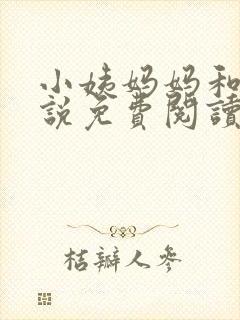 小姨妈妈和
說免費閱讀
桔瓣人參